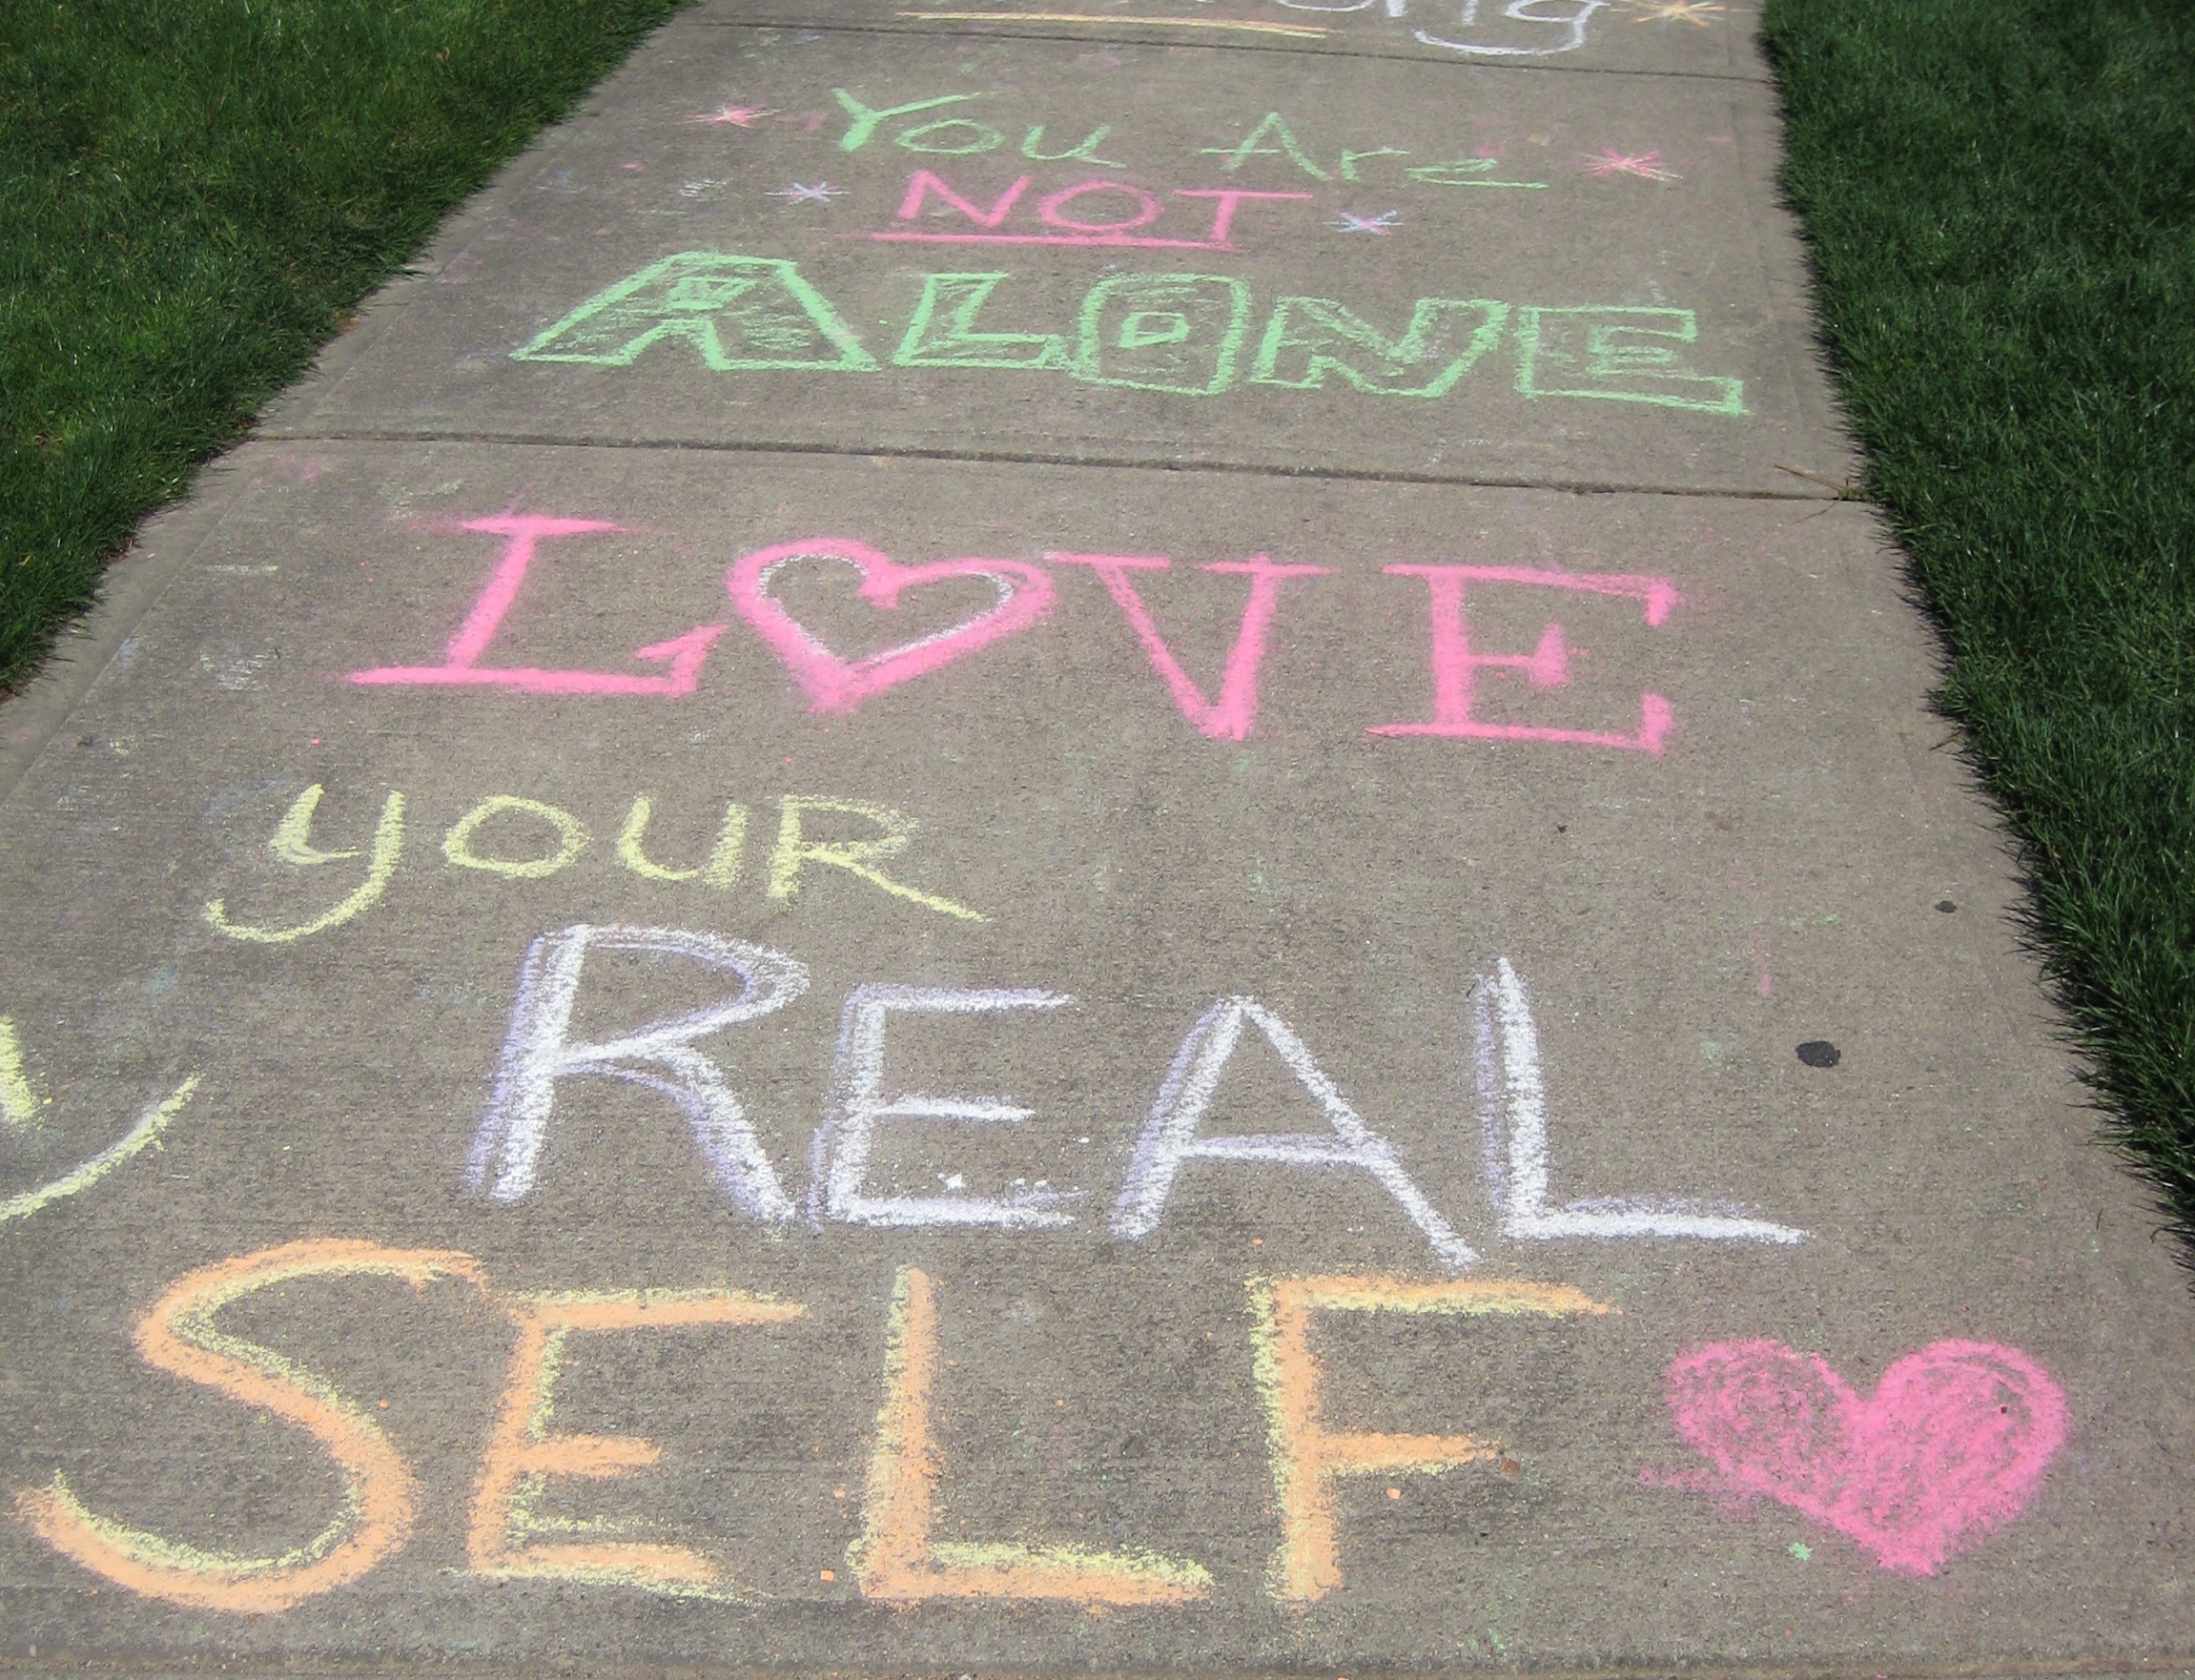 You Are
NOT
ALONE
LOVE
youR
REAL
SELF